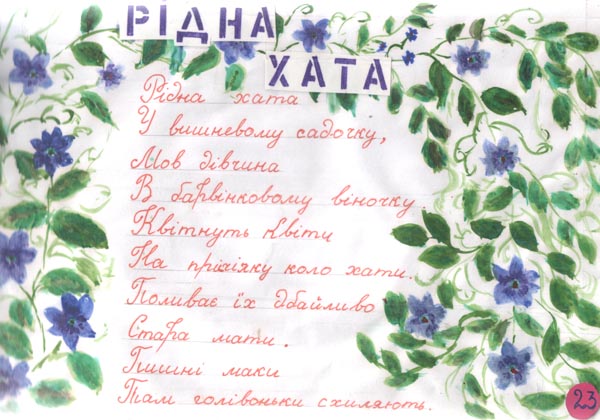 РІДНА
ХАТА
Рідна хата
У вишневому садочку,
Мов дівчина
В барвінковому віночку.
Квітнуть квіти
На прізіяку коло хати.
Поливає їх дбайливо
Стара мати.
Пишні маки
Там голівоньки схиляють.
23